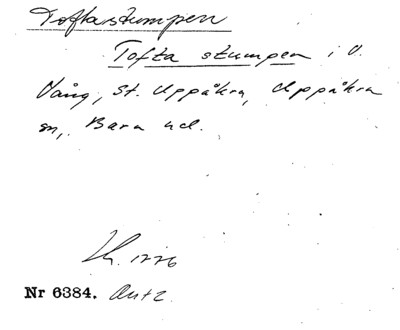 Toftastumpen
Tofta stumpen i V.
Vång, St. Uppåkra, Uppåkra
sn, Bara hd.
Nr 6384.